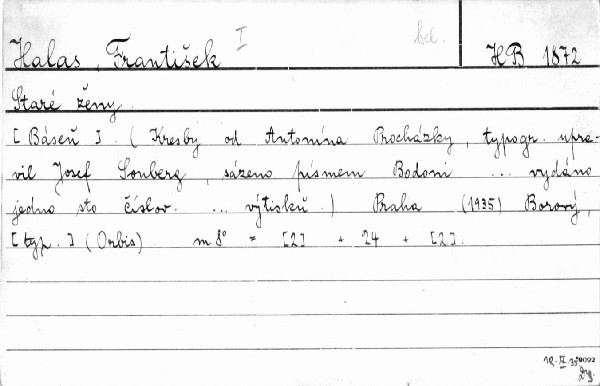 Halas, František I bel. HB 1872
Staré ženy.
[Báseň]. (Kresby od Antonína Procházky, typogr. upra-
vil Josef Sonberg, sázeno písmem Bodoni ... vydáno
jedno sto číslov. ... výtisků.) Praha (1935) Borový,
[typ.] (Orbis). m 8° = [2] + 24 + [2].